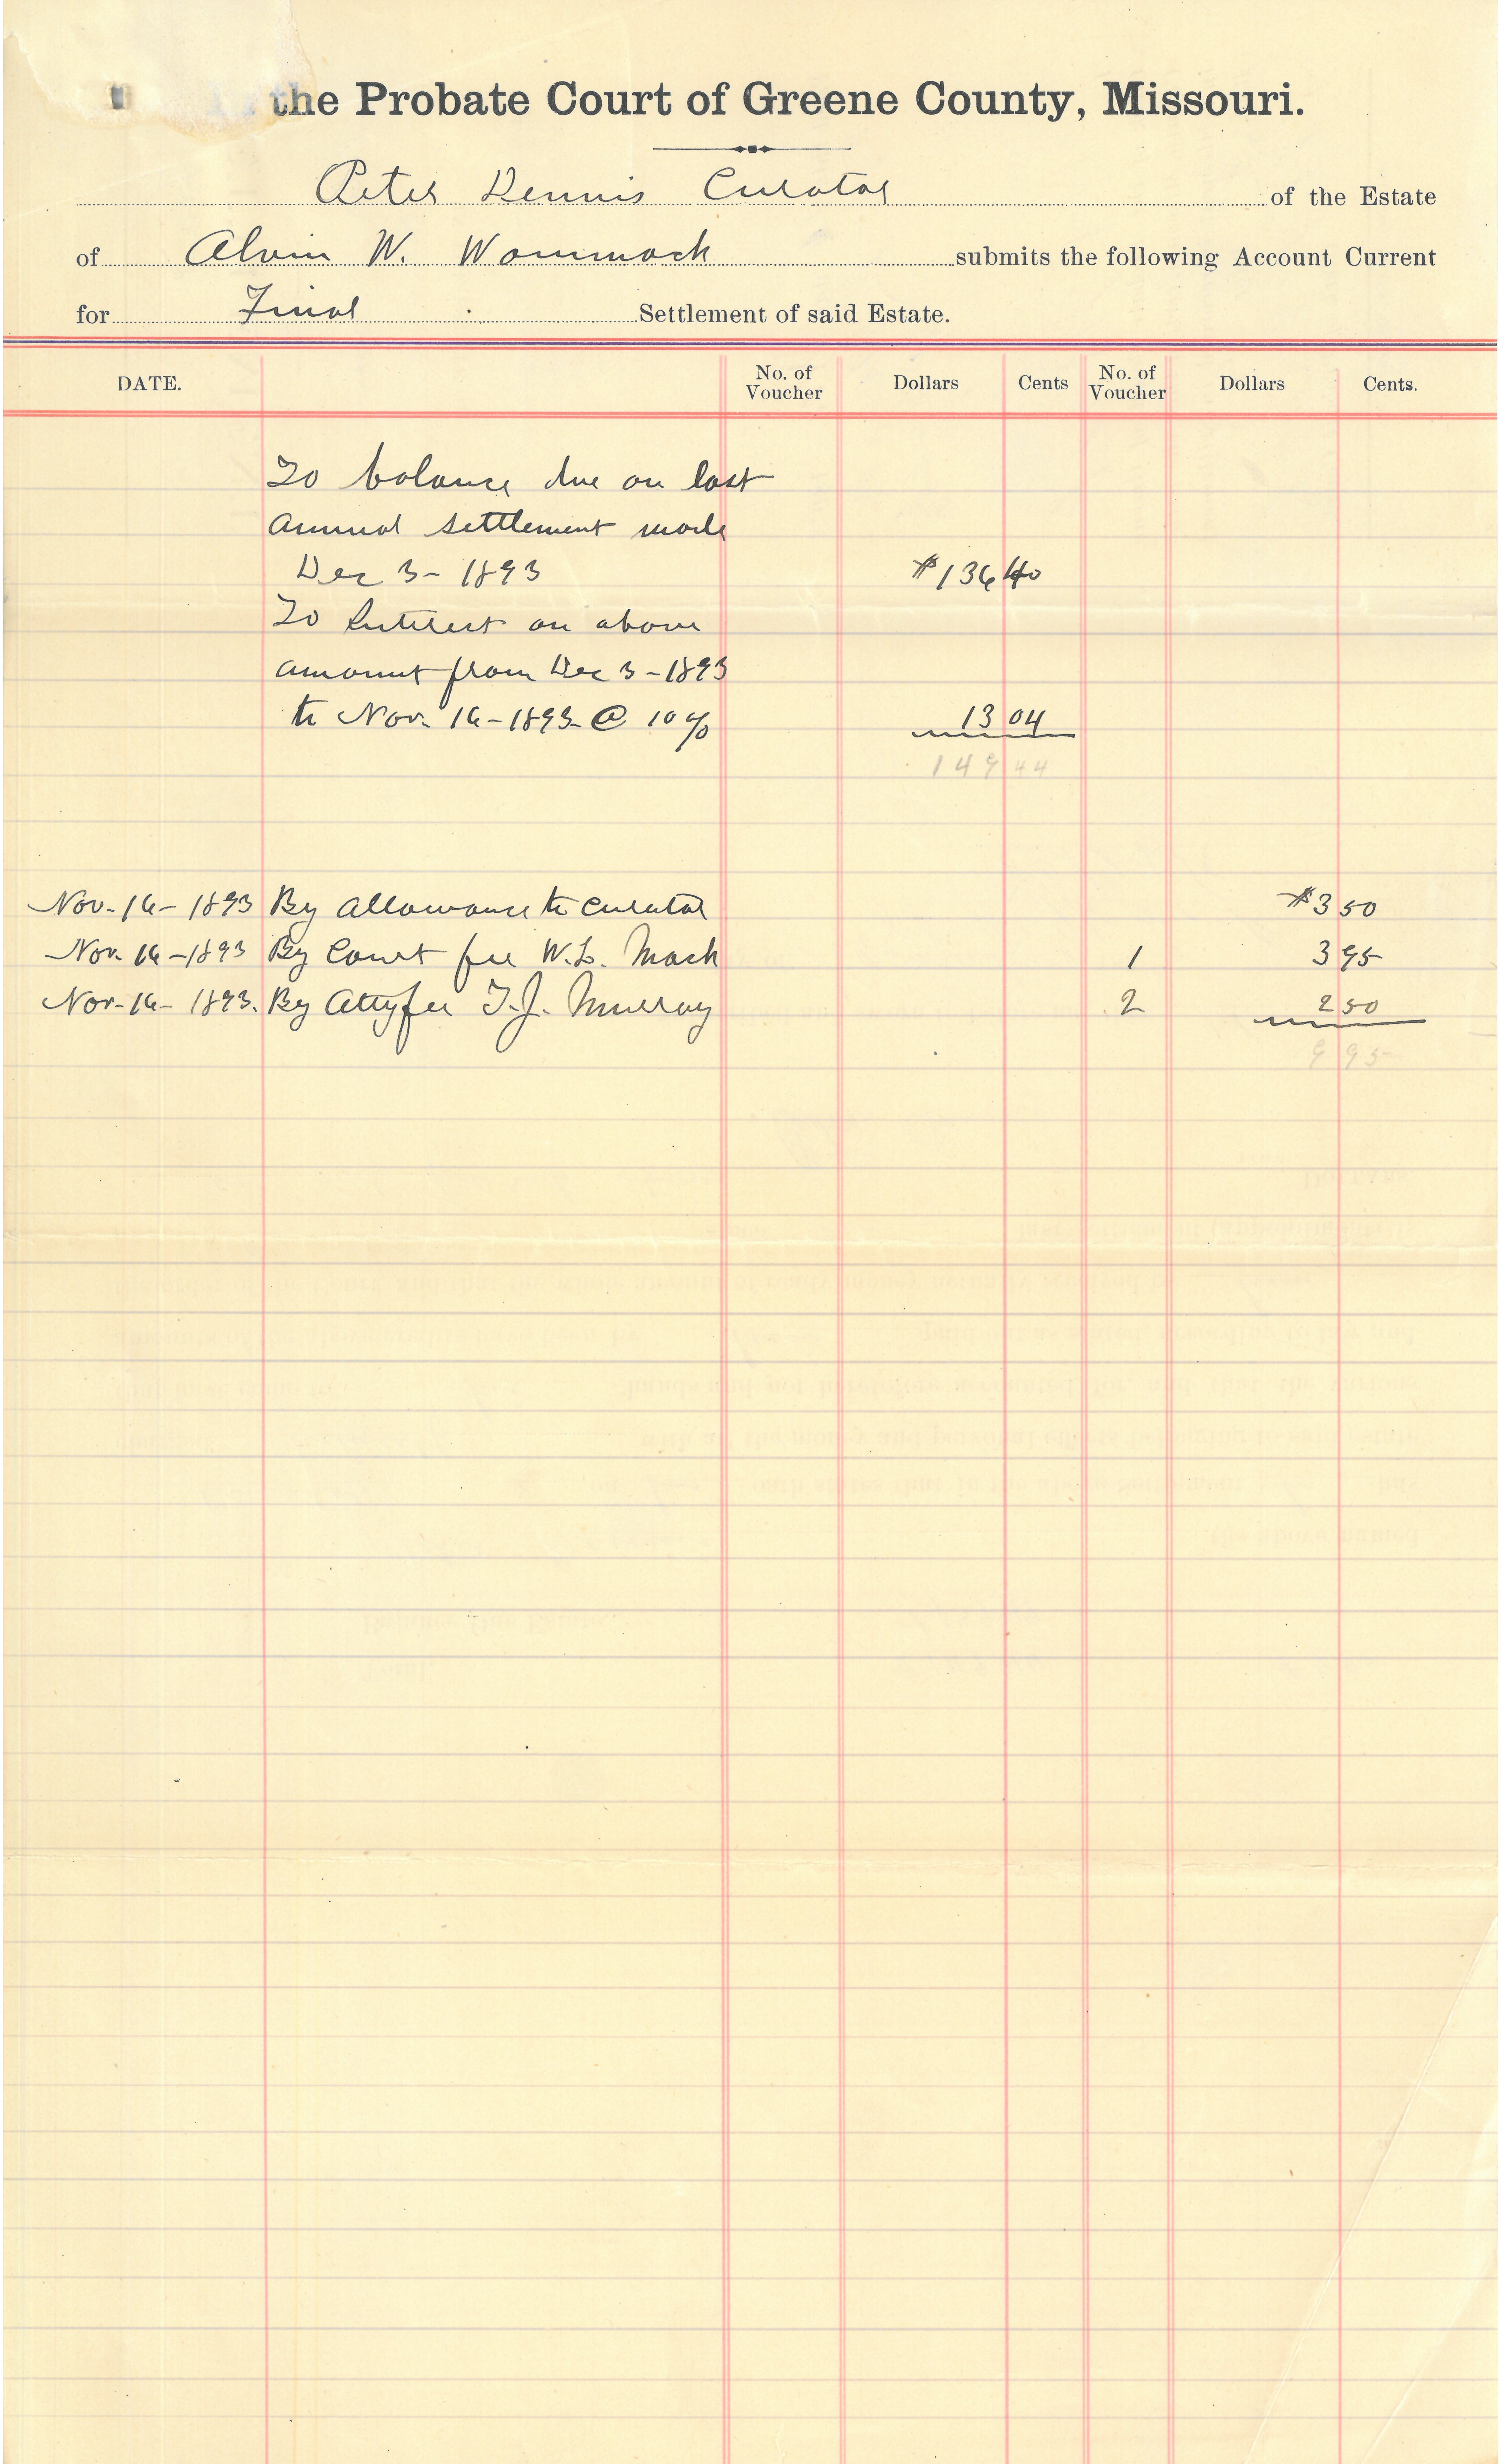 the Probate Court of Greene County, Missouri.
Peter Dennis Curator of the Estate
of Alvin W. Wommack submits the following Account Current
for Final Settlement of said Estate.
DATE. No. of Voucher Dollars Cents No. of Voucher Dollars Cents.
To balance due on last
annual settlement made
Dec 3 - 1893 $136 40
To Interest on above
amount from Dec 3 - 1893
to Nov. 16 - 1893 @ 10% 13 04
149 44
Nov. 16 - 1893 By Allowance to curator $3 50
Nov. 16 - 1893 By Court fee W.L. Mack 1 3 95
Nov. 16 - 1893. By Atty fee T.J. Murray 2 2 50
9 95